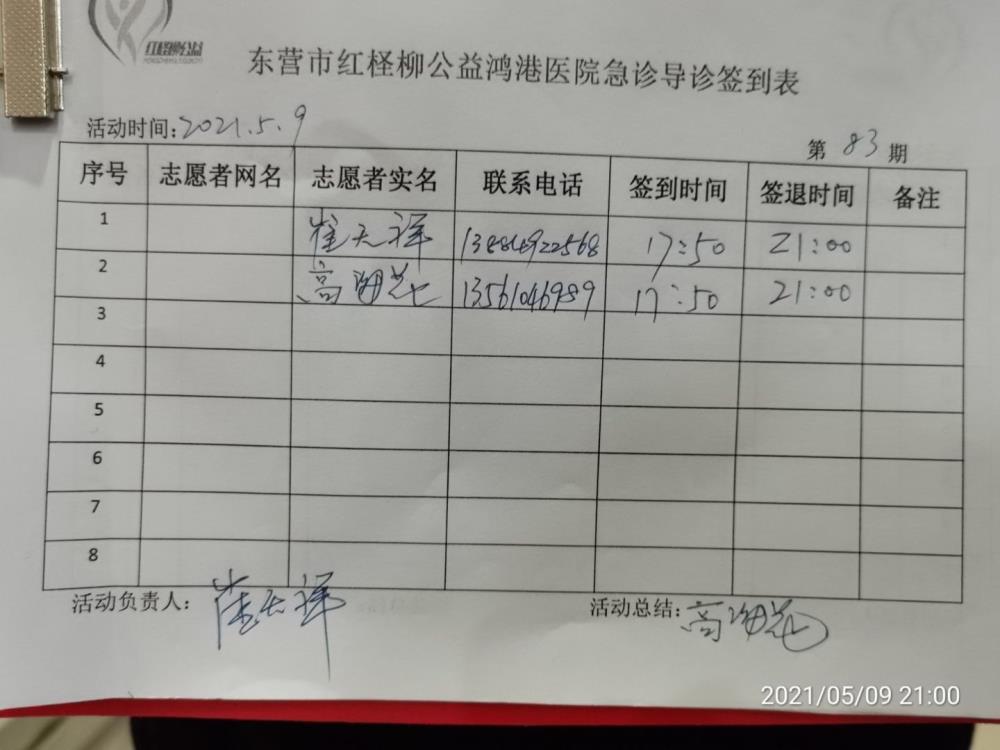 红柽柳公益
东营市红柽柳公益鸿港医院急诊导诊签到表
活动时间:2021.5.9
第 83 期
序号 志愿者网名 志愿者实名 联系电话 签到时间 签退时间 备注
1 崔天祥 13884922568 17:50 21:00
2 高海花 13561046989 17:50 21:00
3
4
5
6
7
8
活动负责人: 崔天祥
活动总结: 高海花
2021/05/09 21:00